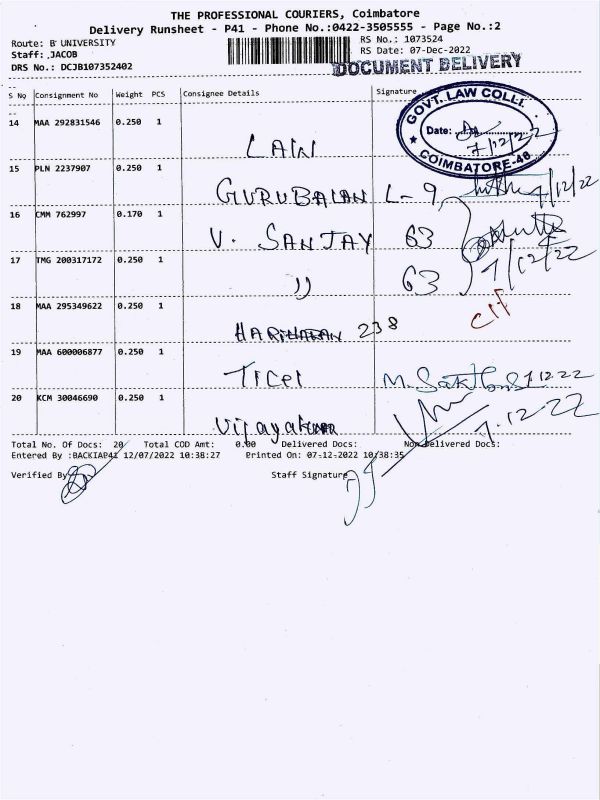 THE PROFESSIONAL COURIERS, Coimbatore
Delivery Runsheet - P41 - Phone No.:0422-3505555 - Page No.:2
Route: B' UNIVERSITY
RS No.: 1073524
Staff: ,JACOB
RS Date: 07-Dec-2022
DRS No.: DCJB107352402
DOCUMENT DELIVERY
S No Consignment No Weight PCS Consignee Details Signature
GOVT. LAW COLL.
Date:
7/12/22
COIMBATORE-46
14 MAA 292831546 0.250 1
LAW
15 PLN 2237907 0.250 1
GURUBALAN L-9, 7/12/22
16 CMM 762997 0.170 1
V. SANJAY 63
17 TMG 200317172 0.250 1
7/12/22
" 63
18 MAA 295349622 0.250 1
HARIHARAN 238
19 MAA 600006877 0.250 1
TICEL 7.12.22
20 KCM 30046690 0.250 1
7.12.22
Vijayakumar
Total No. Of Docs: 20 Total COD Amt: 0.00 Delivered Docs: Non Delivered Docs:
Entered By :BACKIAP41 12/07/2022 10:38:27 Printed On: 07-12-2022 10:38:35
Verified By
Staff Signature